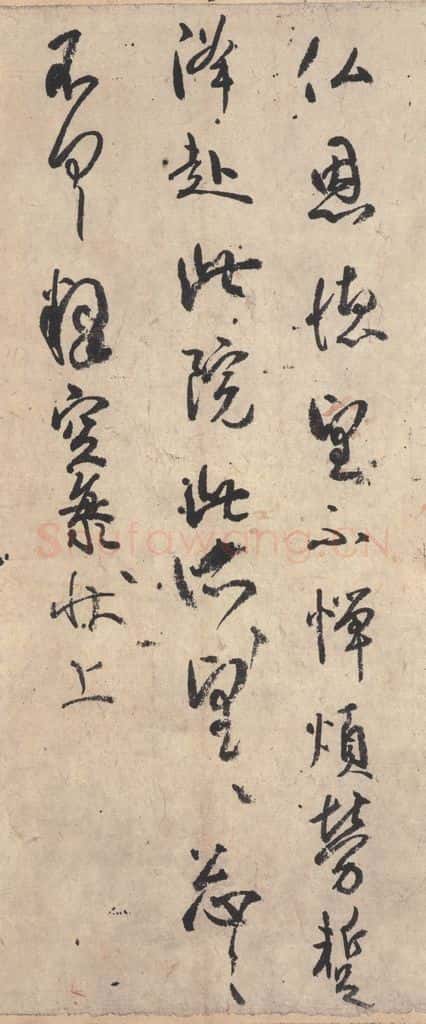 仏恩徳望不憚煩勞蹔
降赴此院此所望々忩々
不具釋空海状上
Shufawang.CN